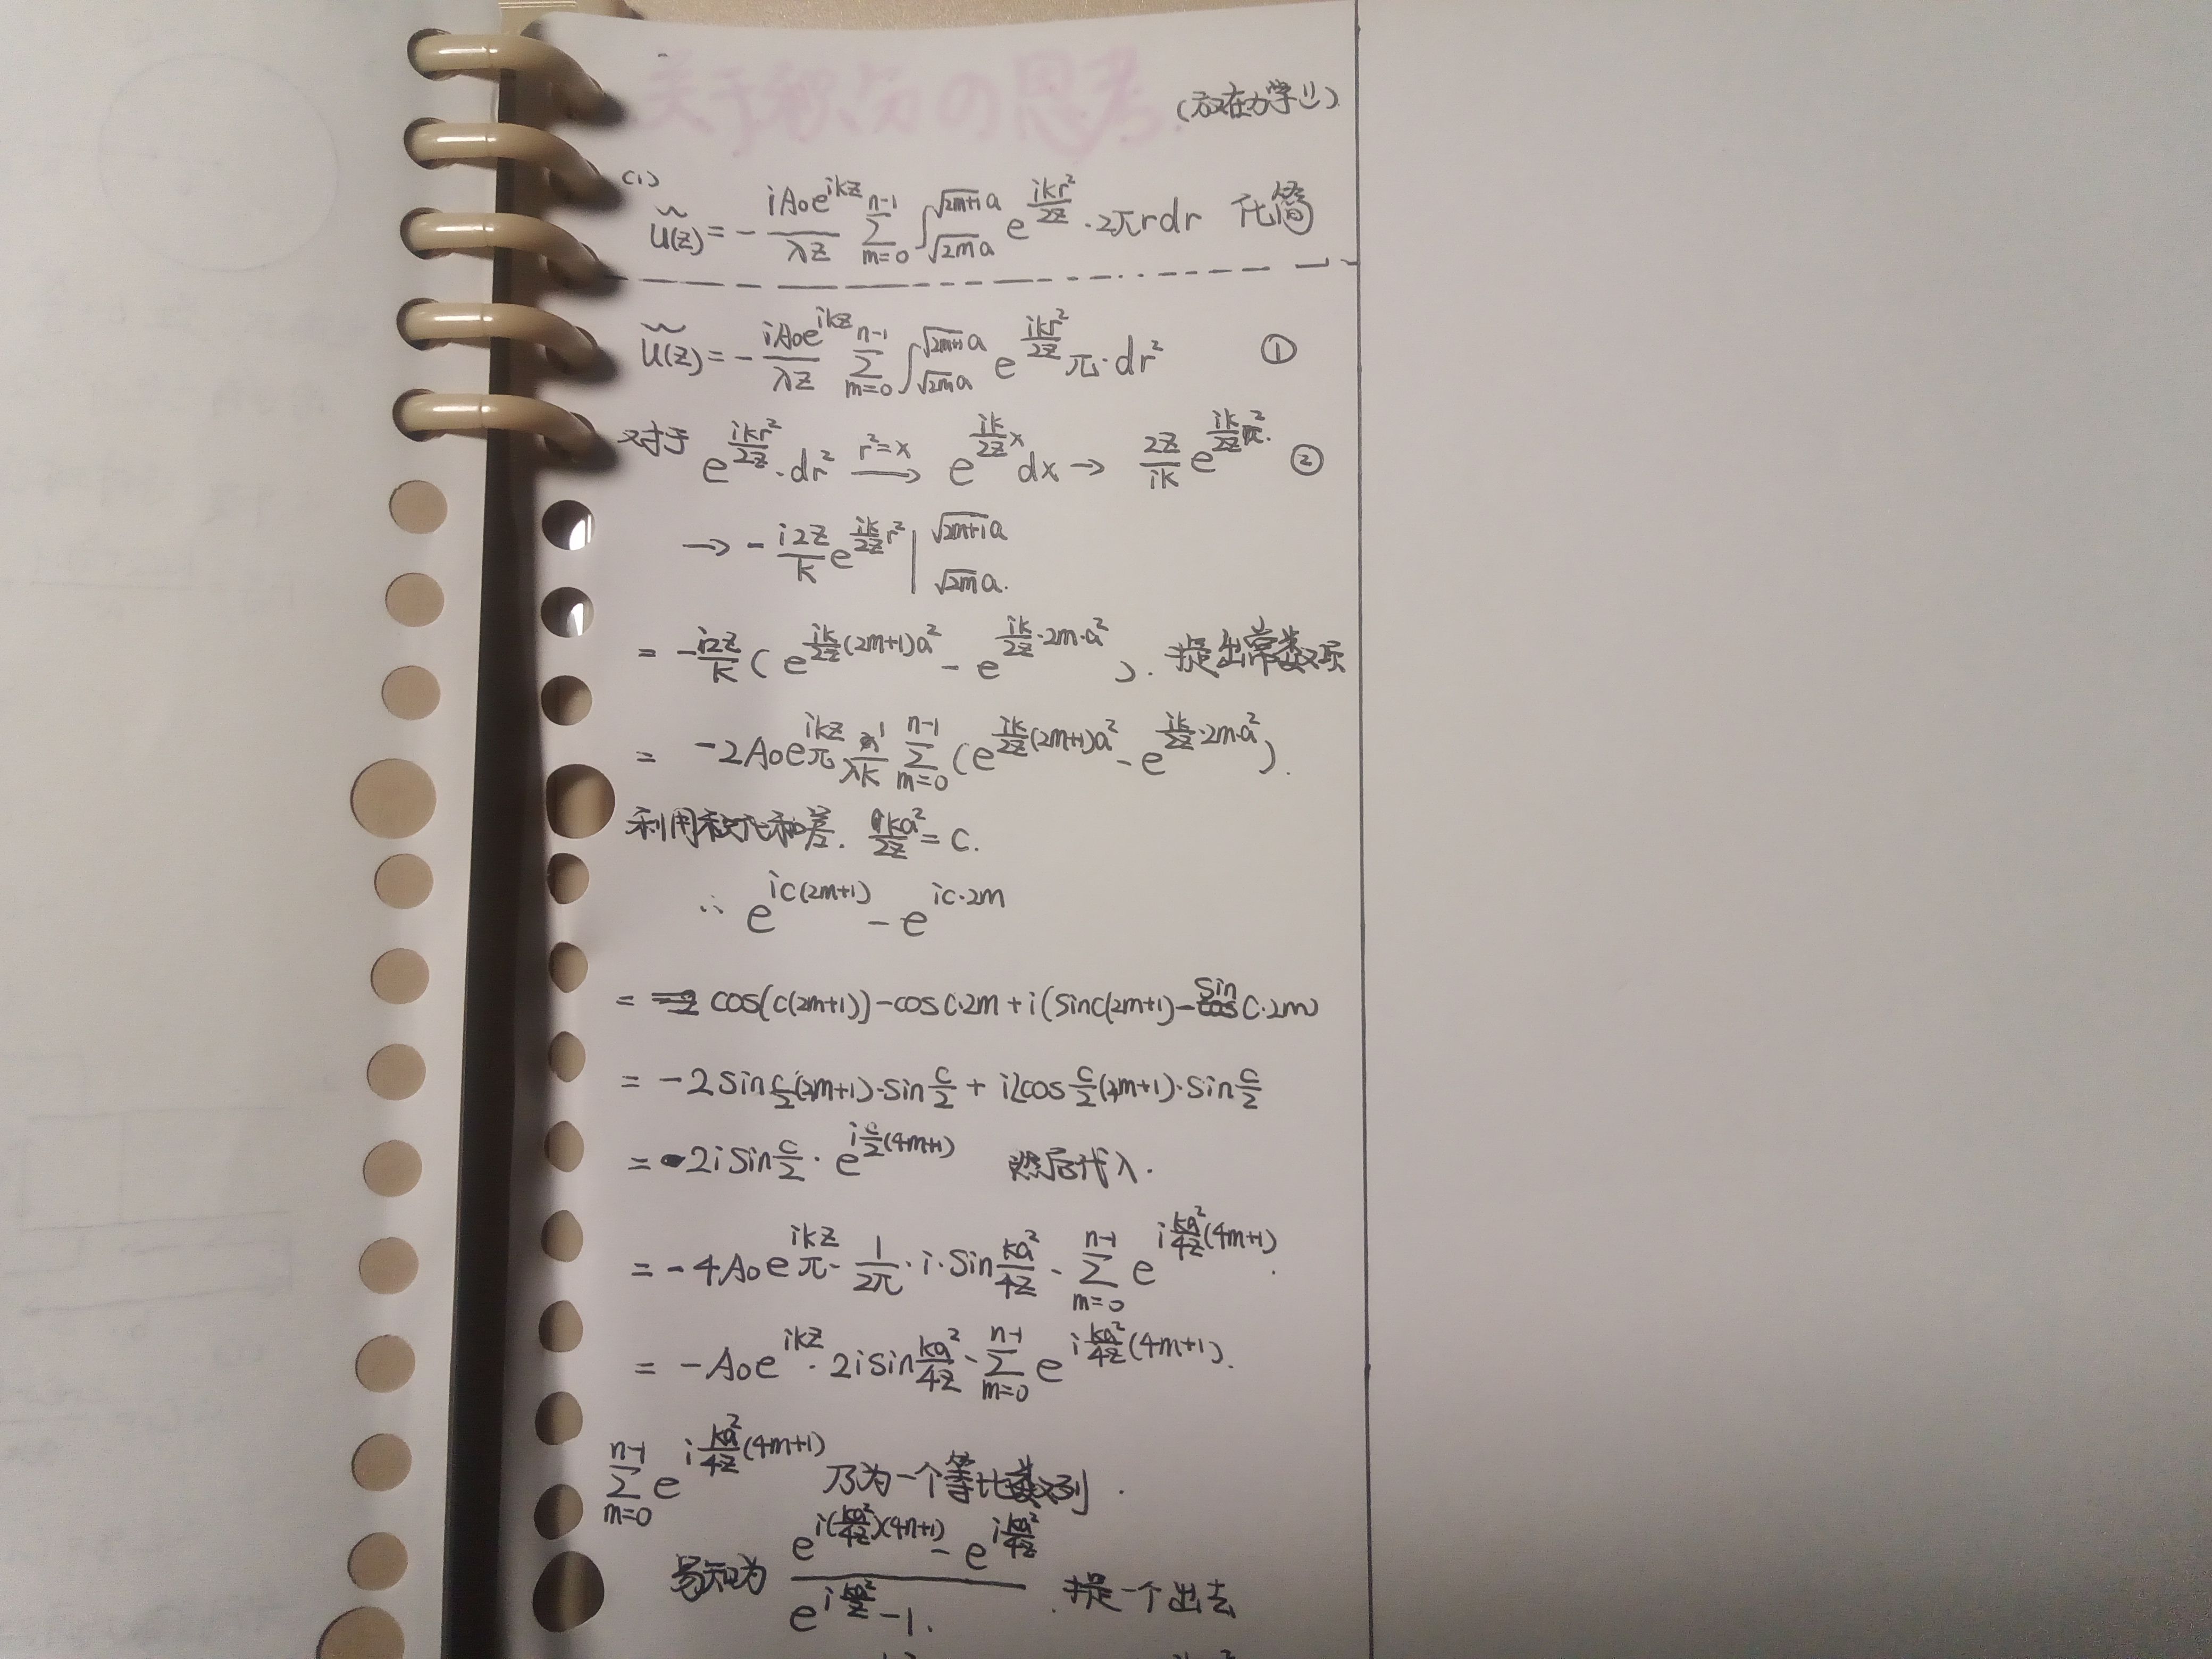 关于积分の思考.
(放在力学!!)
(1)
Ũ(z) = - iA₀e^{ikz}/λz Σ_{m=0}^{n-1} ∫_{√2m a}^{√2m+1 a} e^{ikr²/2z} · 2πrdr 化简
Ũ(z) = - iA₀e^{ikz}/λz Σ_{m=0}^{n-1} ∫_{√2m a}^{√2m+1 a} e^{ikr²/2z} π · dr² ①
对于 e^{ikr²/2z} · dr² →^{r²=x} e^{ik/2z x} dx → 2z/ik e^{ik/2z r²}. ②
→ - i2z/k e^{ik/2z r²} |_{√2m a.}^{√2m+1 a}
= - i2z/k ( e^{ik/2z (2m+1)a²} - e^{ik/2z · 2m·a²} ). 提出常数项
= -2A₀e^{ikz} π 1/λk Σ_{m=0}^{n-1} ( e^{ik/2z (2m+1)a²} - e^{ik/2z · 2m·a²} ).
利用积化和差. ka²/2z = C.
∴ e^{ic(2m+1)} - e^{ic·2m}
= cos(c(2m+1)) - cos c·2m + i(sin c(2m+1) - sin c·2m)
= -2 sin c/2 (2m+1) · sin c/2 + i2cos c/2 (4m+1) · sin c/2
= 2i sin c/2 · e^{i c/2 (4m+1)} 然后代入.
= -4A₀e^{ikz} π · 1/2π · i · sin ka²/4z · Σ_{m=0}^{n-1} e^{i ka²/4z (4m+1)}.
= -A₀e^{ikz} · 2i sin ka²/4z · Σ_{m=0}^{n-1} e^{i ka²/4z (4m+1)}.
Σ_{m=0}^{n-1} e^{i ka²/4z (4m+1)} 乃为一个等比数列.
易知为 (e^{i(ka²/4z)(4n+1)} - e^{i ka²/4z}) / (e^{i ka²/z} - 1). 提一个出去